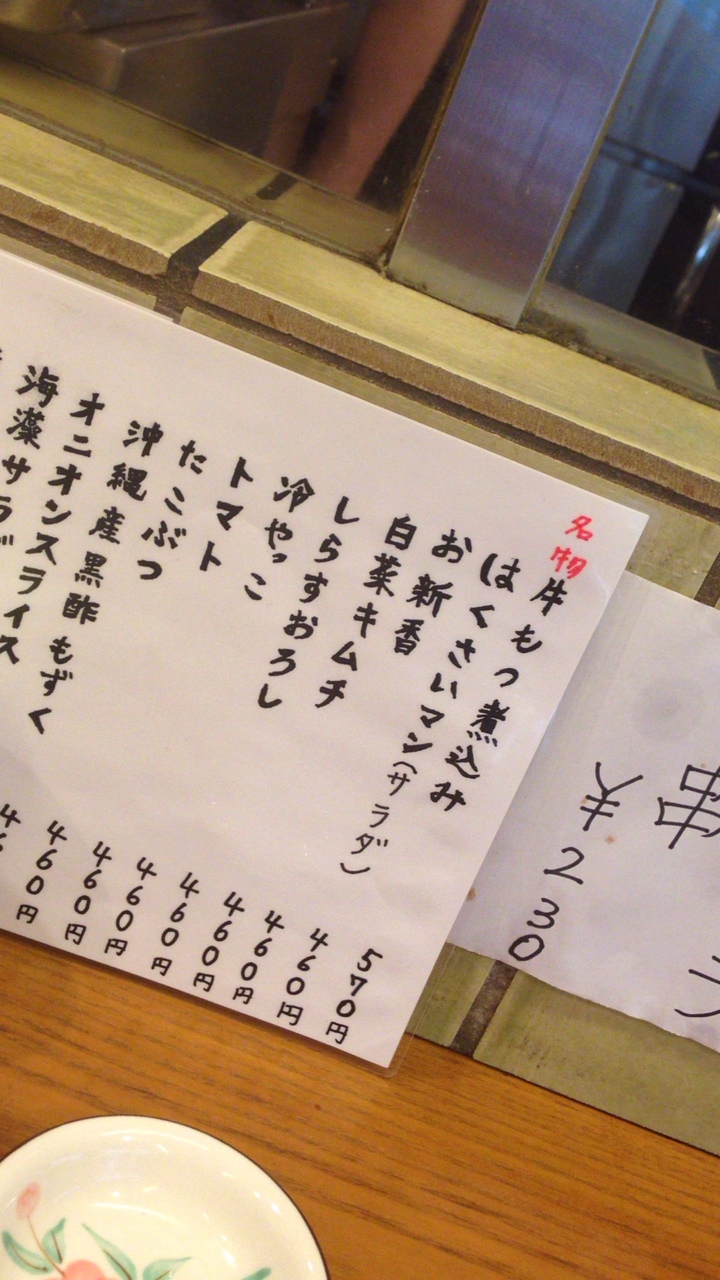 串
¥230
名物牛もつ煮込み 570円
はくさいマン(サラダ) 460円
お新香 460円
白菜キムチ 460円
しらすおろし 460円
冷やっこ 460円
トマト 460円
たこぶつ 460円
沖縄産黒酢もずく 46
オニオンスライス
海藻サラダ